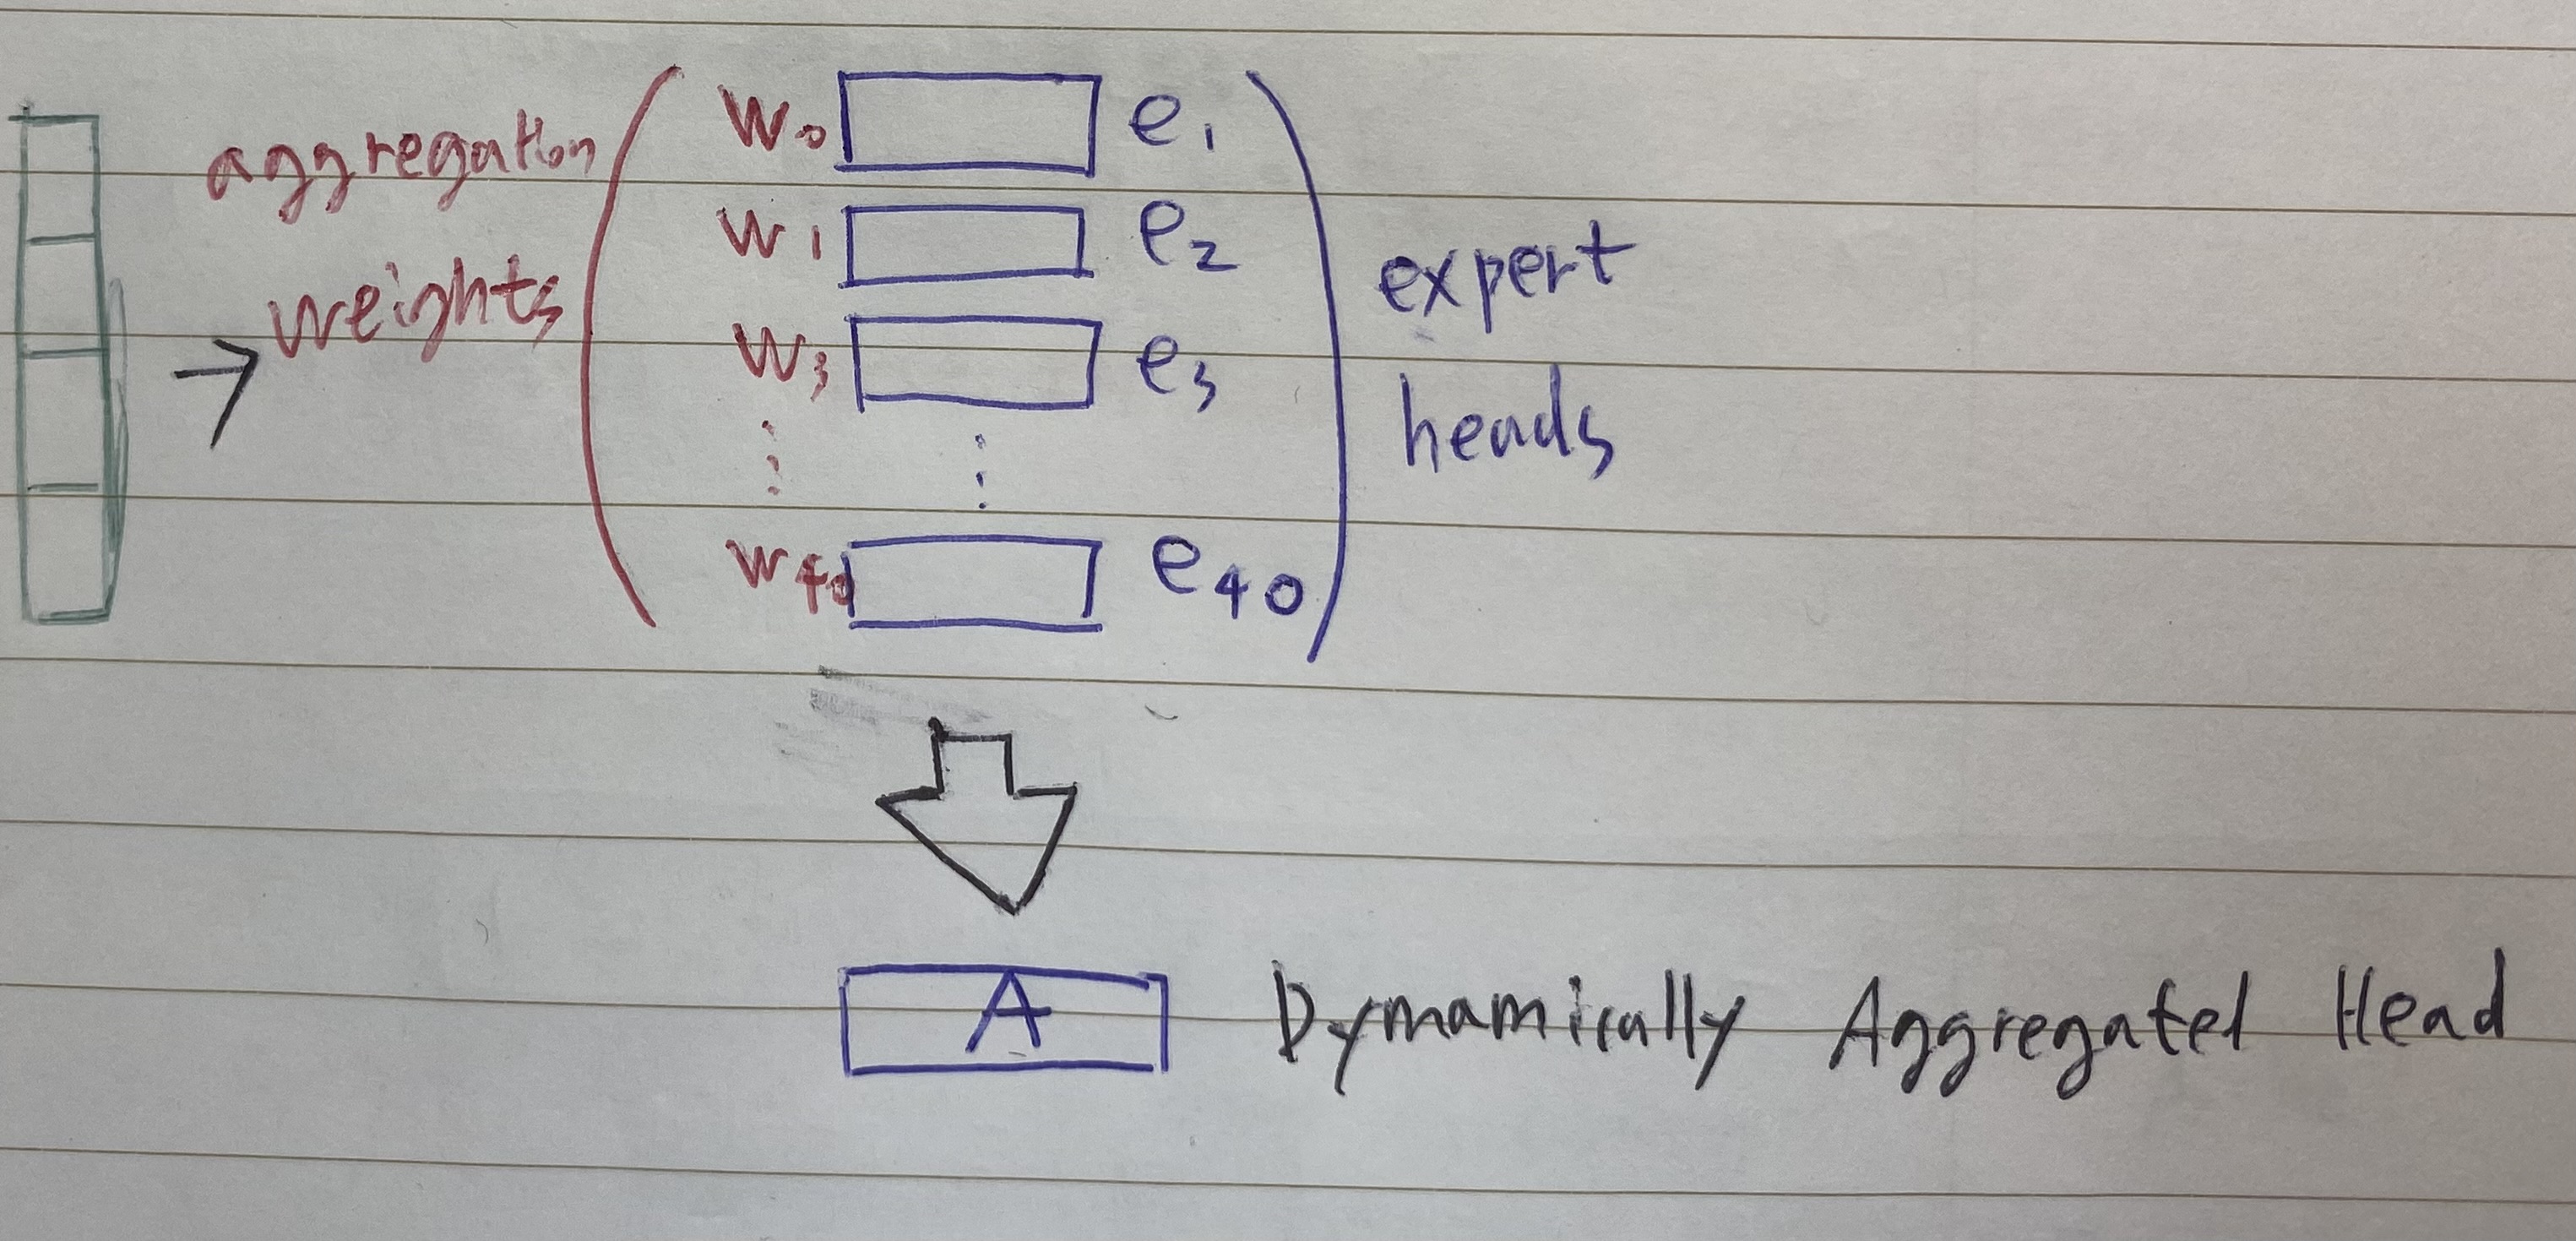 aggregation
weights
w₀ e₁
w₁ e₂
w₃ e₃
⋮ ⋮
w₄₀ e₄₀
expert
heads
A Dymamically Aggregated Head